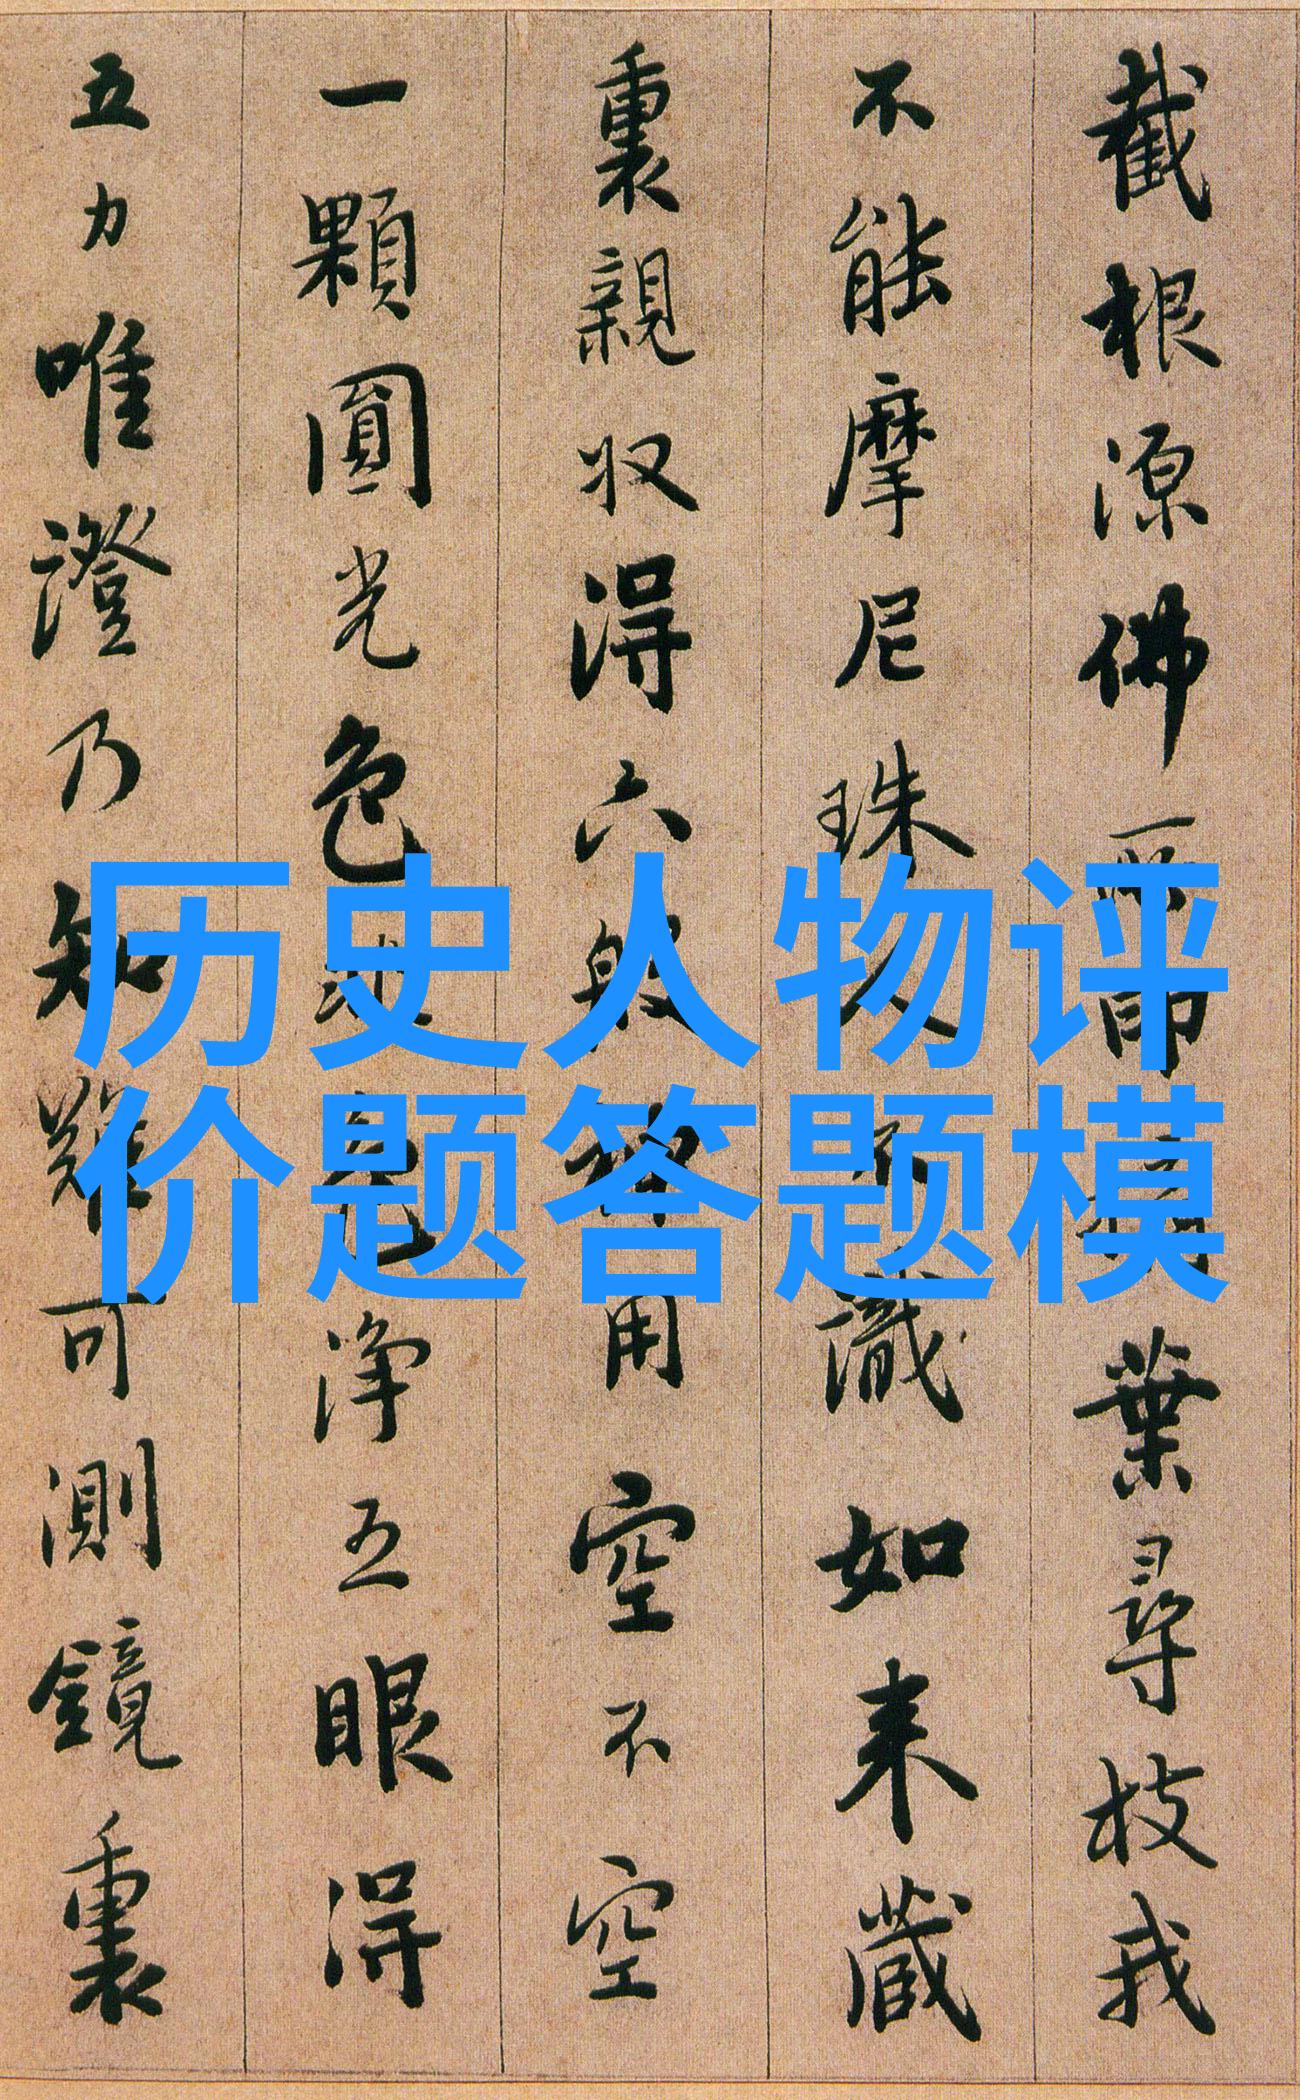 截根源佛所印摘葉尋枝我
不能摩尼珠人不識如来藏
裏親收得六般神用空不空
一顆圓光色非色淨五眼得
五力唯證乃知難可測鏡裏
历史人物评
价题答题模